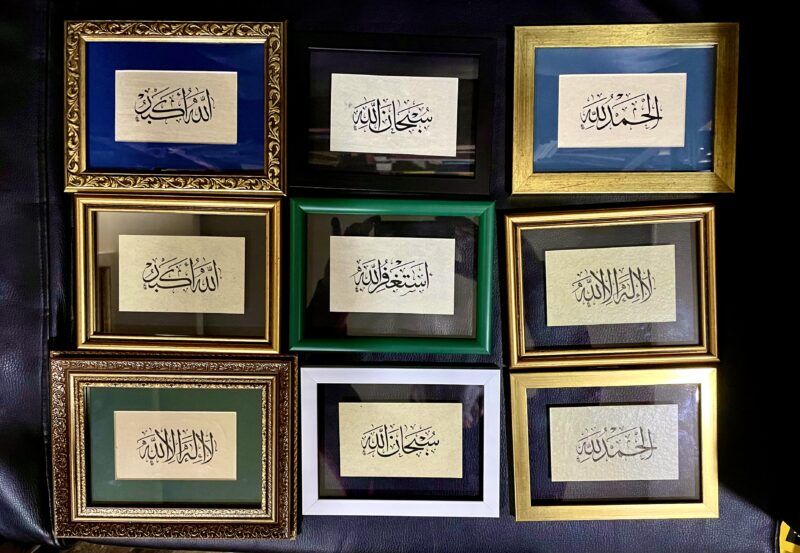 اللهُ أَكْبَرُ
سُبْحَانَ اللَّهِ
الْحَمْدُ لِلَّهِ
اللهُ أَكْبَرُ
أَسْتَغْفِرُ اللَّهَ
لَا إِلَهَ إِلَّا اللَّهُ
لَا إِلَهَ إِلَّا اللَّهُ
سُبْحَانَ اللَّهِ
الْحَمْدُ لِلَّهِ